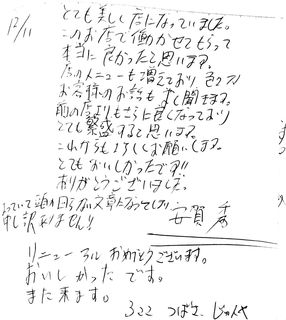 12/11
とても美しく店になっていました。
このお店で働かせてもらって
本当に良かったと思います。
店のメニューも増えており
お客様のお話もよく聞きます。
前の店よりもさらに良くなっており
とても繁盛すると思います。
これからもよろしくお願いします。
とてもおいしかったです!!
ありがとうございました。
申し訳ありません!!
安賀
リニューアルおめでとうございます。
おいしかったです。
また来ます。
322 つばさ、じゅんや